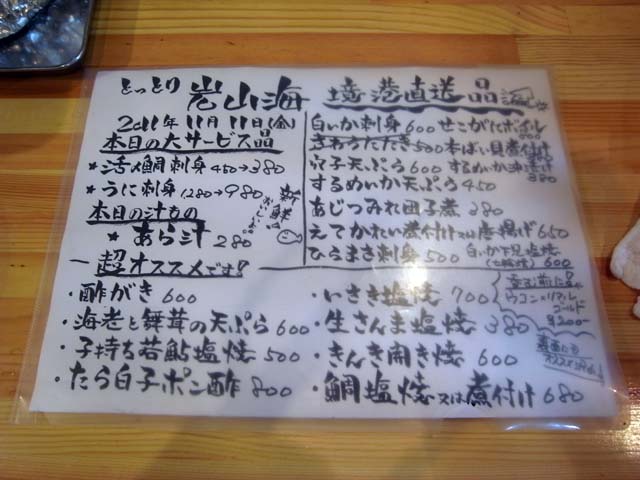 とっとり 岩山海
2011年11月11日(金)
本日の大サービス品
★活〆鯛刺身 450→380
★うに刺身 1280→980
新鮮
おいしいよ
本日の汁もの
★あら汁 280
境港直送品
白いか刺身 600 せこがにボイル
さわらたたき 500 本ばい貝煮付け
穴子天ぷら 600 するめいか沖漬け 380
するめいか天ぷら 450
あじつみれ団子煮 280
えてかれい煮付け又は唐揚げ 650
ひらまさ刺身 500 白いか下足塩焼 600
超オススメです!
・酢がき 600
・海老と舞茸の天ぷら 600
・子持ち若鮎塩焼 500
・たら白子ポン酢 800
・いさき塩焼 700
・生さんま塩焼 380
・きんき開き焼 600
・鯛塩焼又は煮付け 680
呑む前に
ウコン
ゴールド
¥200-
裏面にも
オススメ